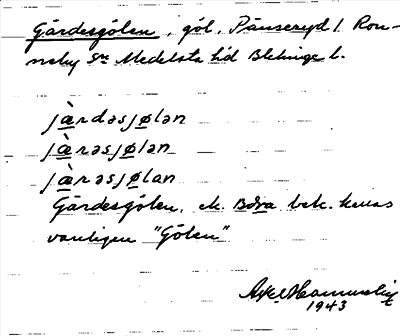 Gärdesgölen, göl, Pänseryd, Ron-
neby sn Medelsta hd Blekinge l.
jà̱rdəsjø̱lən
jà̱rəsjø̱lən
jà̱rəsjø̱lan
Gärdesgölen, ek. Böva bek. kallas
vanligen "Gölen"
1943